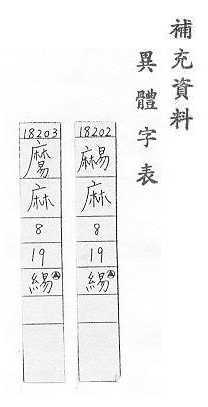 補充資料
異體字表
18202
麻
8
19
緆
18203
麻
8
19
緆